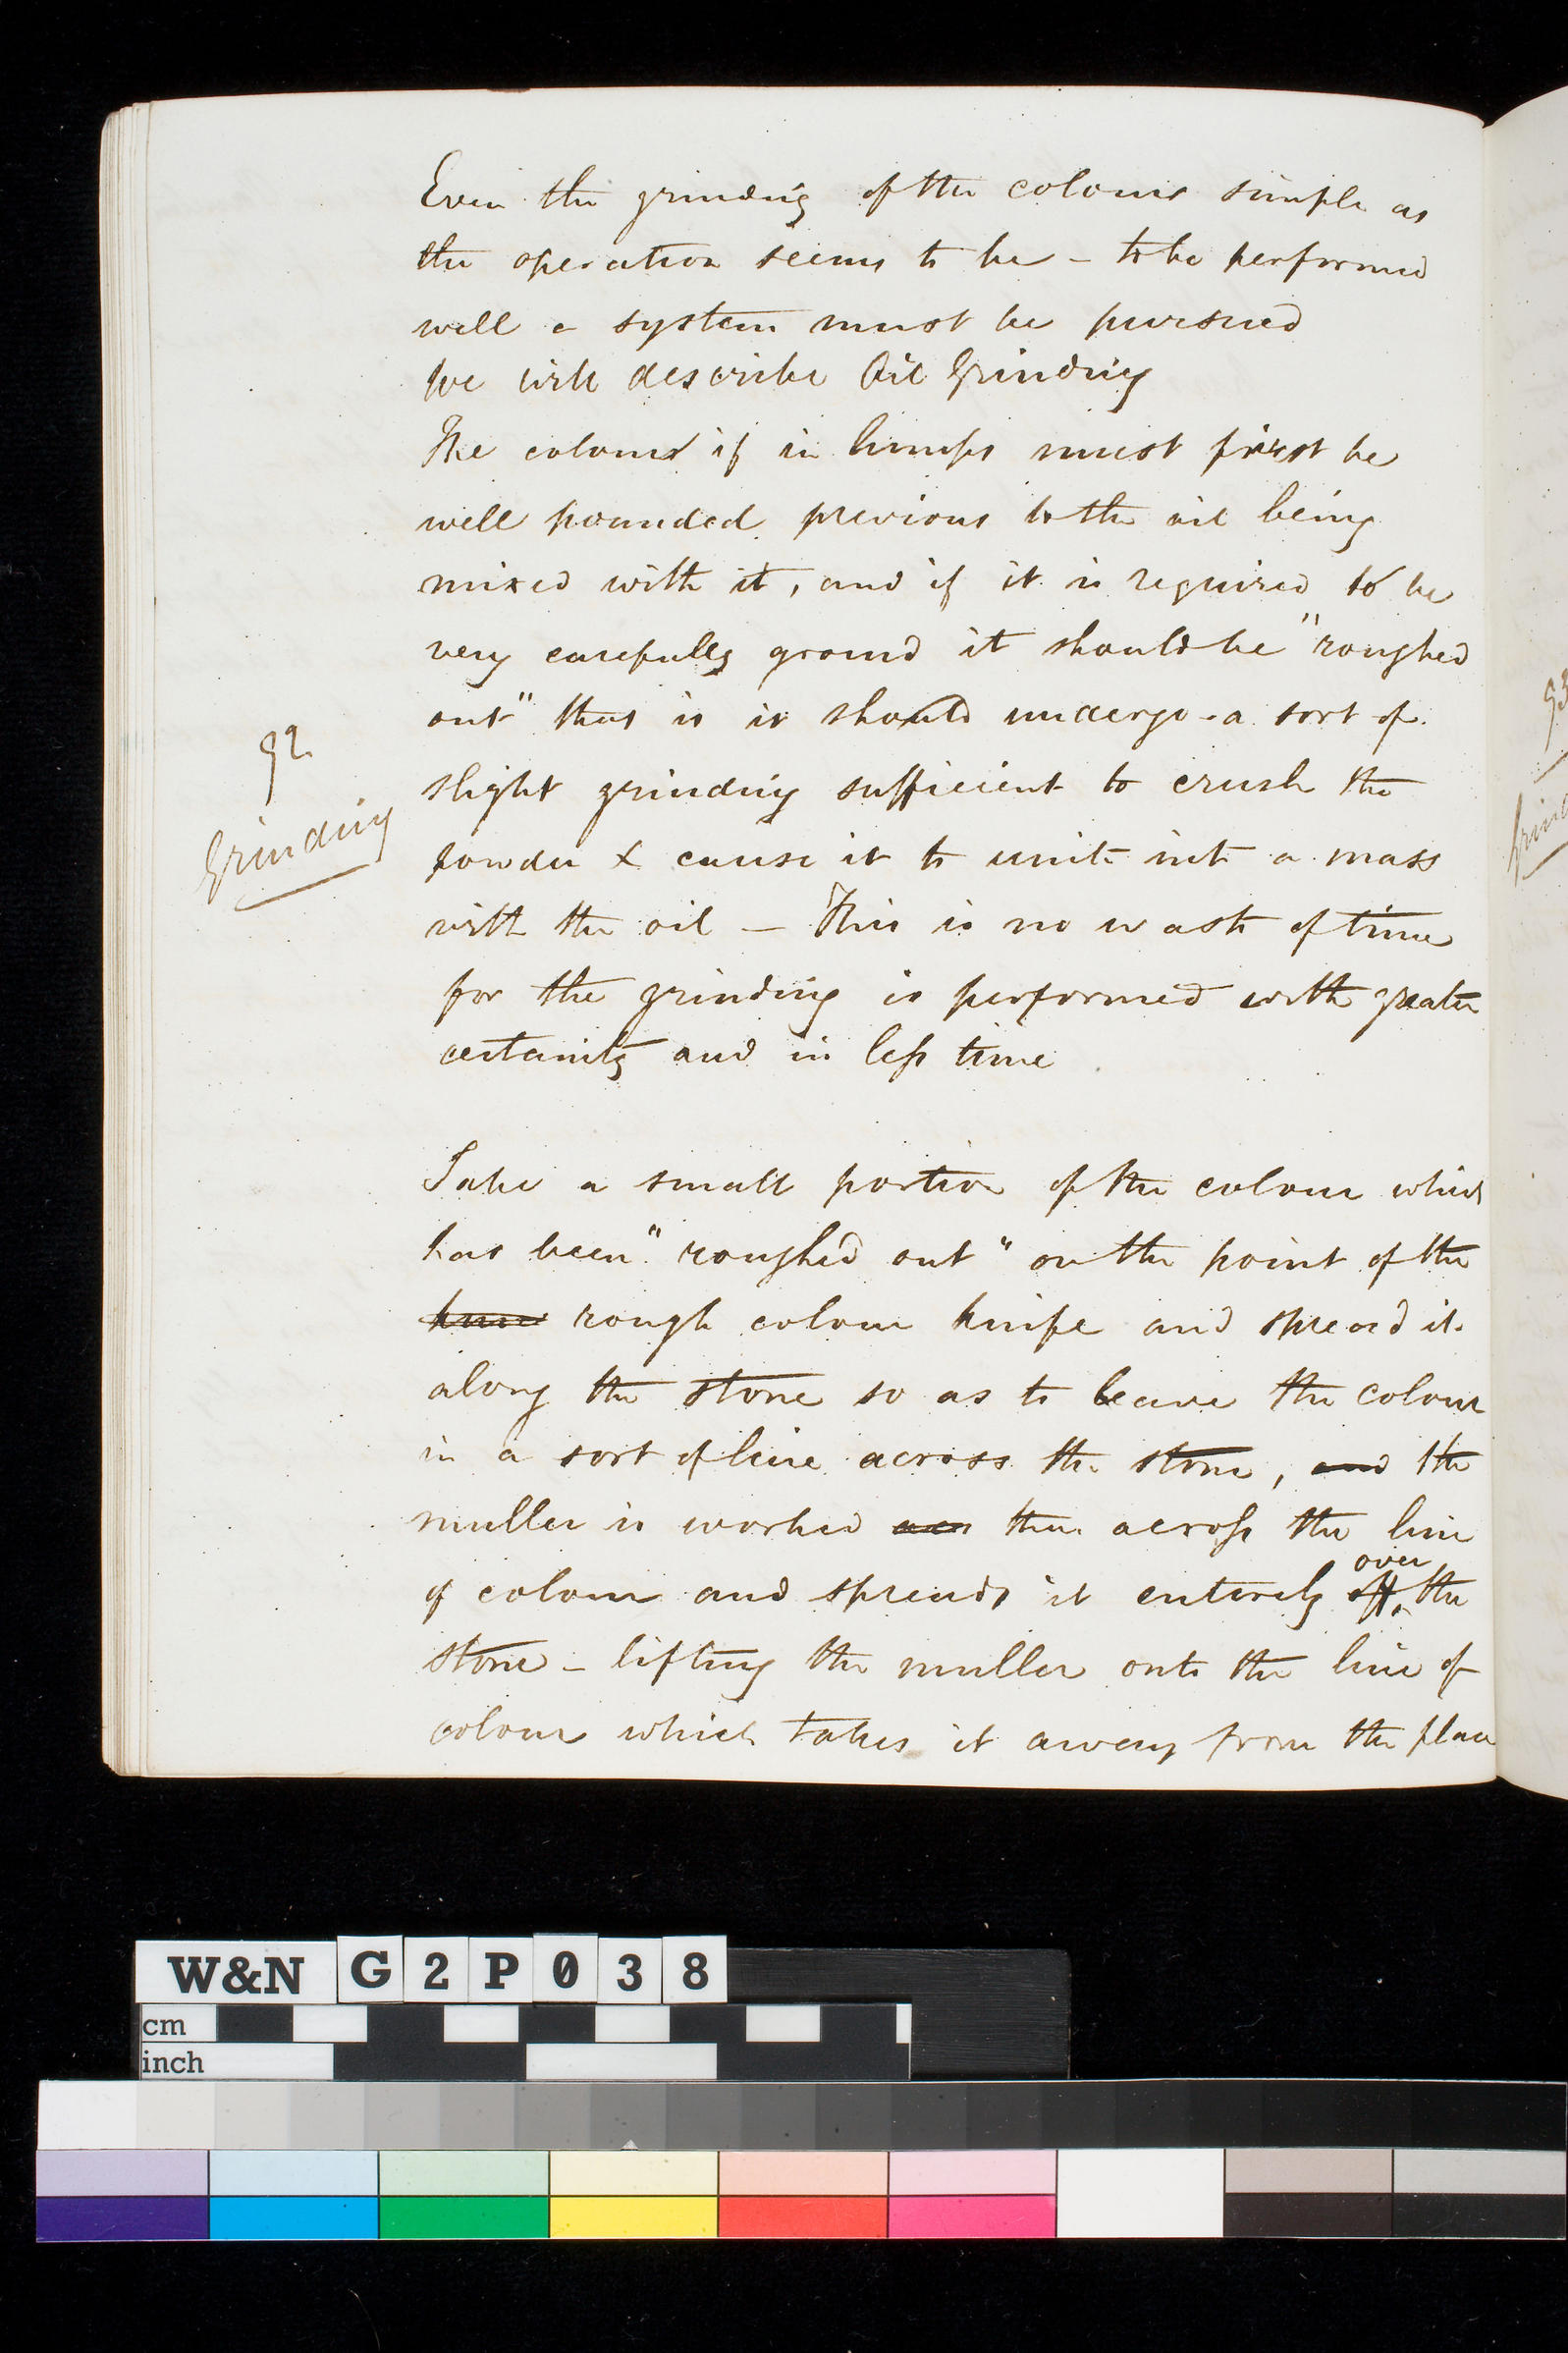 Even the grinding of the colours simple as
the operation seems to be – to be performed
well a system must be pursued
We will describe Oil Grinding
The colour if in lumps must first be
well pounded previous to the oil being
mixed with it, and if it is required to be
very carefully ground it should be "roughed
out" that is it should undergo a sort of
slight grinding sufficient to crush the
92
Grinding
powder & cause it to unite into a mass
with the oil – This is no waste of time
for the grinding is performed with greater
certainty and in less time
Take a small portion of the colour which
has been "roughed out" on the point of the
rough colour knife and spread it
along the stone so as to leave the colour
in a sort of line across the stone, and the
muller is worked acr then across the line
of colour and spreads it entirely off over the
stone – lifting the muller onto the line of
colour which takes it away from the place
93
W&N G2P038
cm
inch